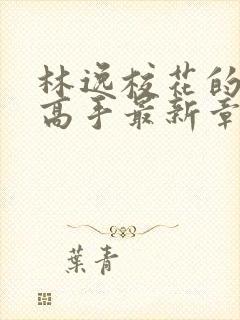 林逸校花的
高手最新章
葉青